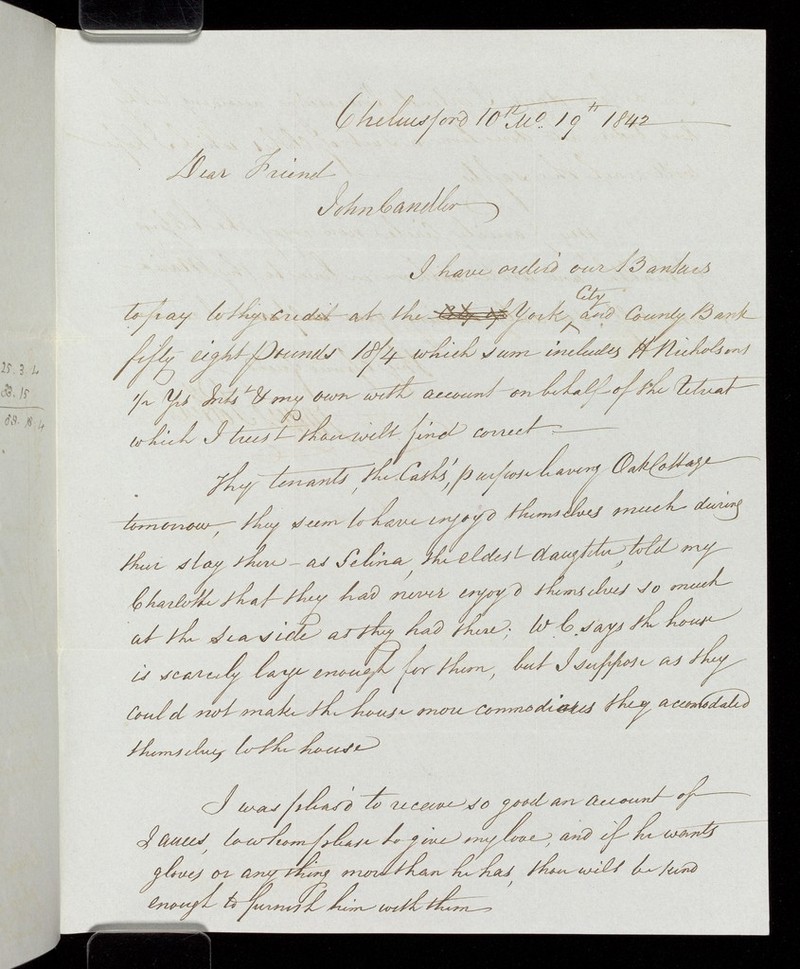 Chelmsford 10th Mo. 19th 1842
Dear Friend
John Candler
I have order'd our Bankers
to pay to thy credit at the York City and County Bank
fifty eight Pounds 18/4 which sum includes H Nicholsons
25. 3. 4
33. 15
58. 18. 4
& my own with account on behalf of the Retreat
which I trust thou wilt find correct —
Thy tenants, the Cash's, purpose leaving Oak Cottage
tomorrow, they seem to have enjoy'd themselves much during
their stay there – as Selina, the eldest daughter, told my
Charlotte that they had never enjoy'd themselves so much
at the sea side as they had there; W C. says the house
is scarcely large enough for them, but I suppose as they
could not make the house more commodious they accomodated
themselves to the house
I was pleas'd to receive so good an account of
James, to whom please to give my love, and if he wants
gloves or any thing more than he has, thou wilt be kind
enough to furnish him with them